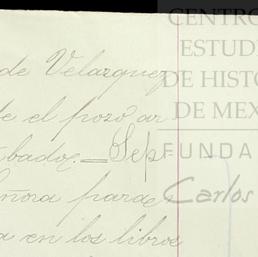 de Velazquez
de el pozo ar
bados. — Sep
ñora para
a en los libros
CENTRO
ESTUDI
DE HISTO
DE MEX
FUNDA
Carlos